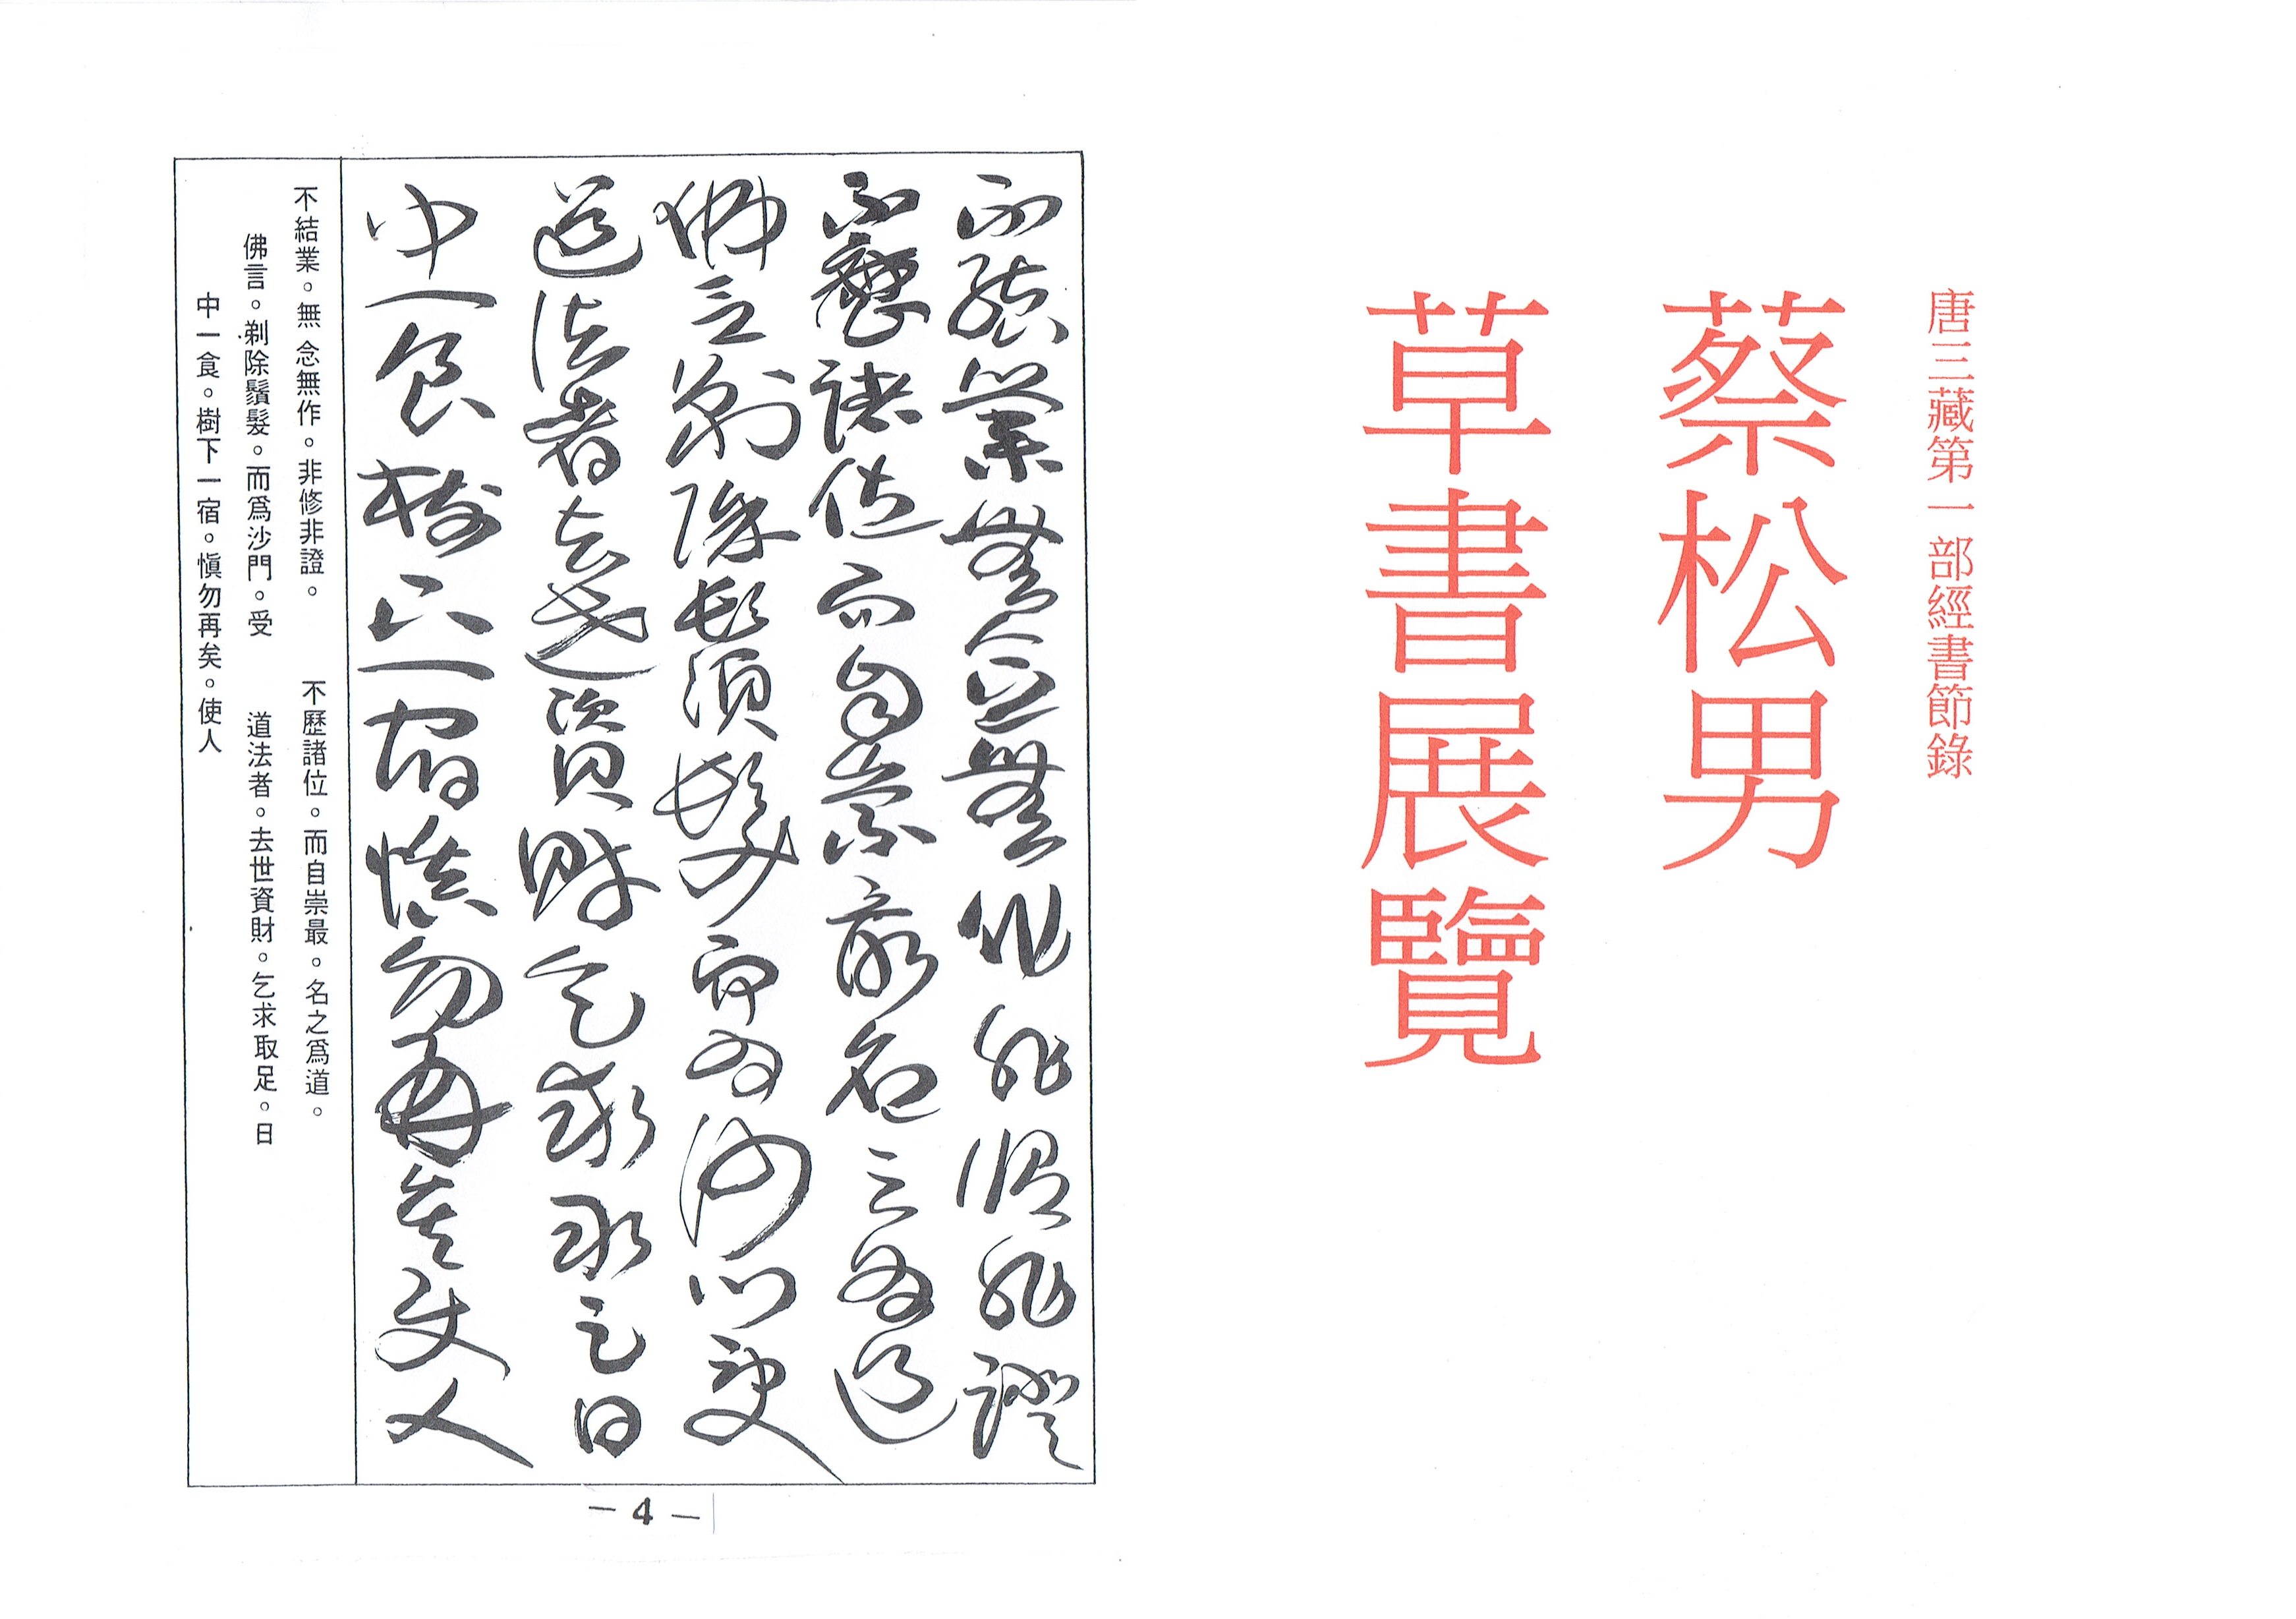 唐三藏第一部經書節錄
蔡松男
草書展覽
不結業無念無作非修非證
不歷諸位而自崇最名之為道
佛言剃除鬚髮而為沙門受
道法者去世資財乞求取足日
中一食樹下一宿慎勿再矣使人
不結業。無念無作。非修非證。 不歷諸位。而自崇最。名之爲道。
佛言。剃除鬚髮。而爲沙門。受 道法者。去世資財。乞求取足。日
中一食。樹下一宿。愼勿再矣。使人
— 4 —